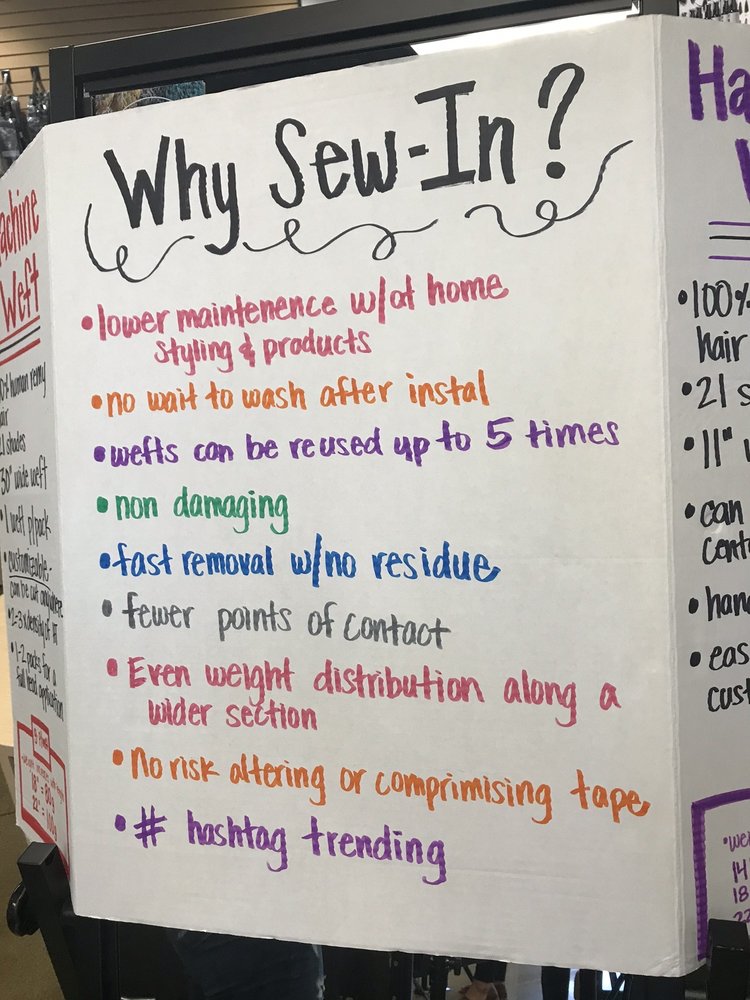 Why Sew-In?
•lower maintenence w/at home
styling & products
•no wait to wash after instal
•wefts can be reused up to 5 times
•non damaging
•fast removal w/no residue
•fewer points of contact
•Even weight distribution along a
wider section
•No risk altering or comprimising tape
•# hashtag trending
achine
Weft
human remy
air
21 shades
30" wide weft
•1 weft p/pack
•customizable-
can be cut anywhere
•1-2 packs for a
full head application
Ha
•100%
hair
•21 s
•11" w
•can
cent
•han
•eas
cust
•we
14
18
22